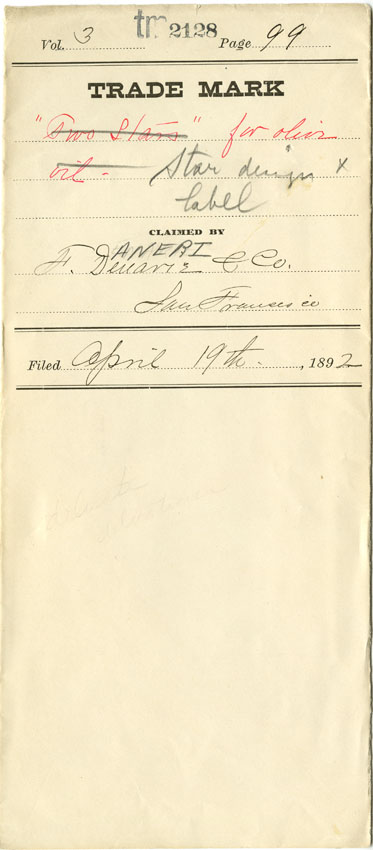 tm 2128
Vol. 3 Page 99
TRADE MARK
"Two Stars" for olive
oil - Star design x
label
CLAIMED BY
ANERI
F. Denarie & Co.
San Francisco
Filed April 19th. , 1892